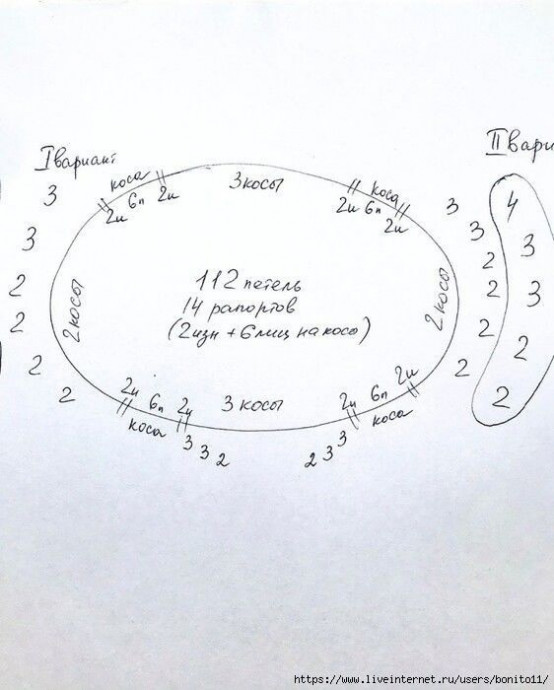 I вариант
II вари
коса
2и 6л 2и
3 косы
коса
2и 6л 2и
3
3
2
2
2
2
2 косы
112 петель
14 рапортов
(2изн + 6лиц на косу)
2 косы
3
3
2
2
2
2
4
3
3
2
2
2и 6л 2и
коса
3 косы
2и 6л 2и
коса
3 3 2
2 3 3
https://www.liveinternet.ru/users/bonito11/